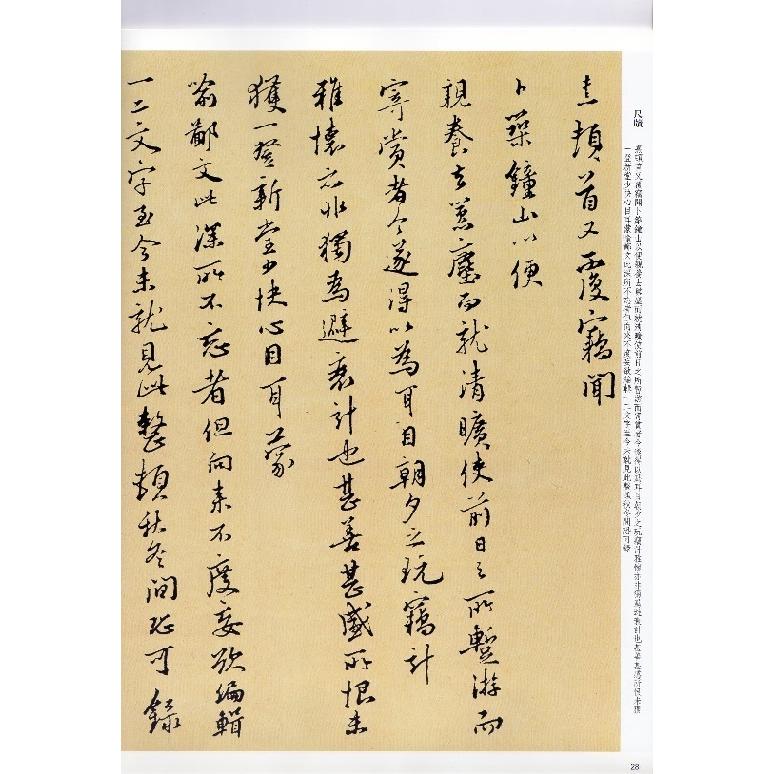 尺牘
熹頓首又覆竊聞卜築鍾山以便親養去囂塵而就清曠使前日之所暫游而寄賞者今遂得以爲耳目朝夕之玩竊計雅懷亦非獨爲避衰計也甚善甚盛所恨未獲
一登新堂少快心目耳蒙喻鄙文此深所不忘者但向來不度妄欲編輯一二文字至今未就見此整頓秋冬間恐可錄
熹頓首又覆竊聞
卜築鐘山以便
親養去囂塵而就清曠使前日之所暫游而
寄賞者今遂得以為耳目朝夕之玩竊計
雅懷亦非獨為避衰計也甚善甚盛所恨未
獲一登新堂少快心目耳蒙
喻鄙文此深所不忘者但向來不度妄欲編輯
一二文字至今未就見此整頓秋冬間恐可錄
28